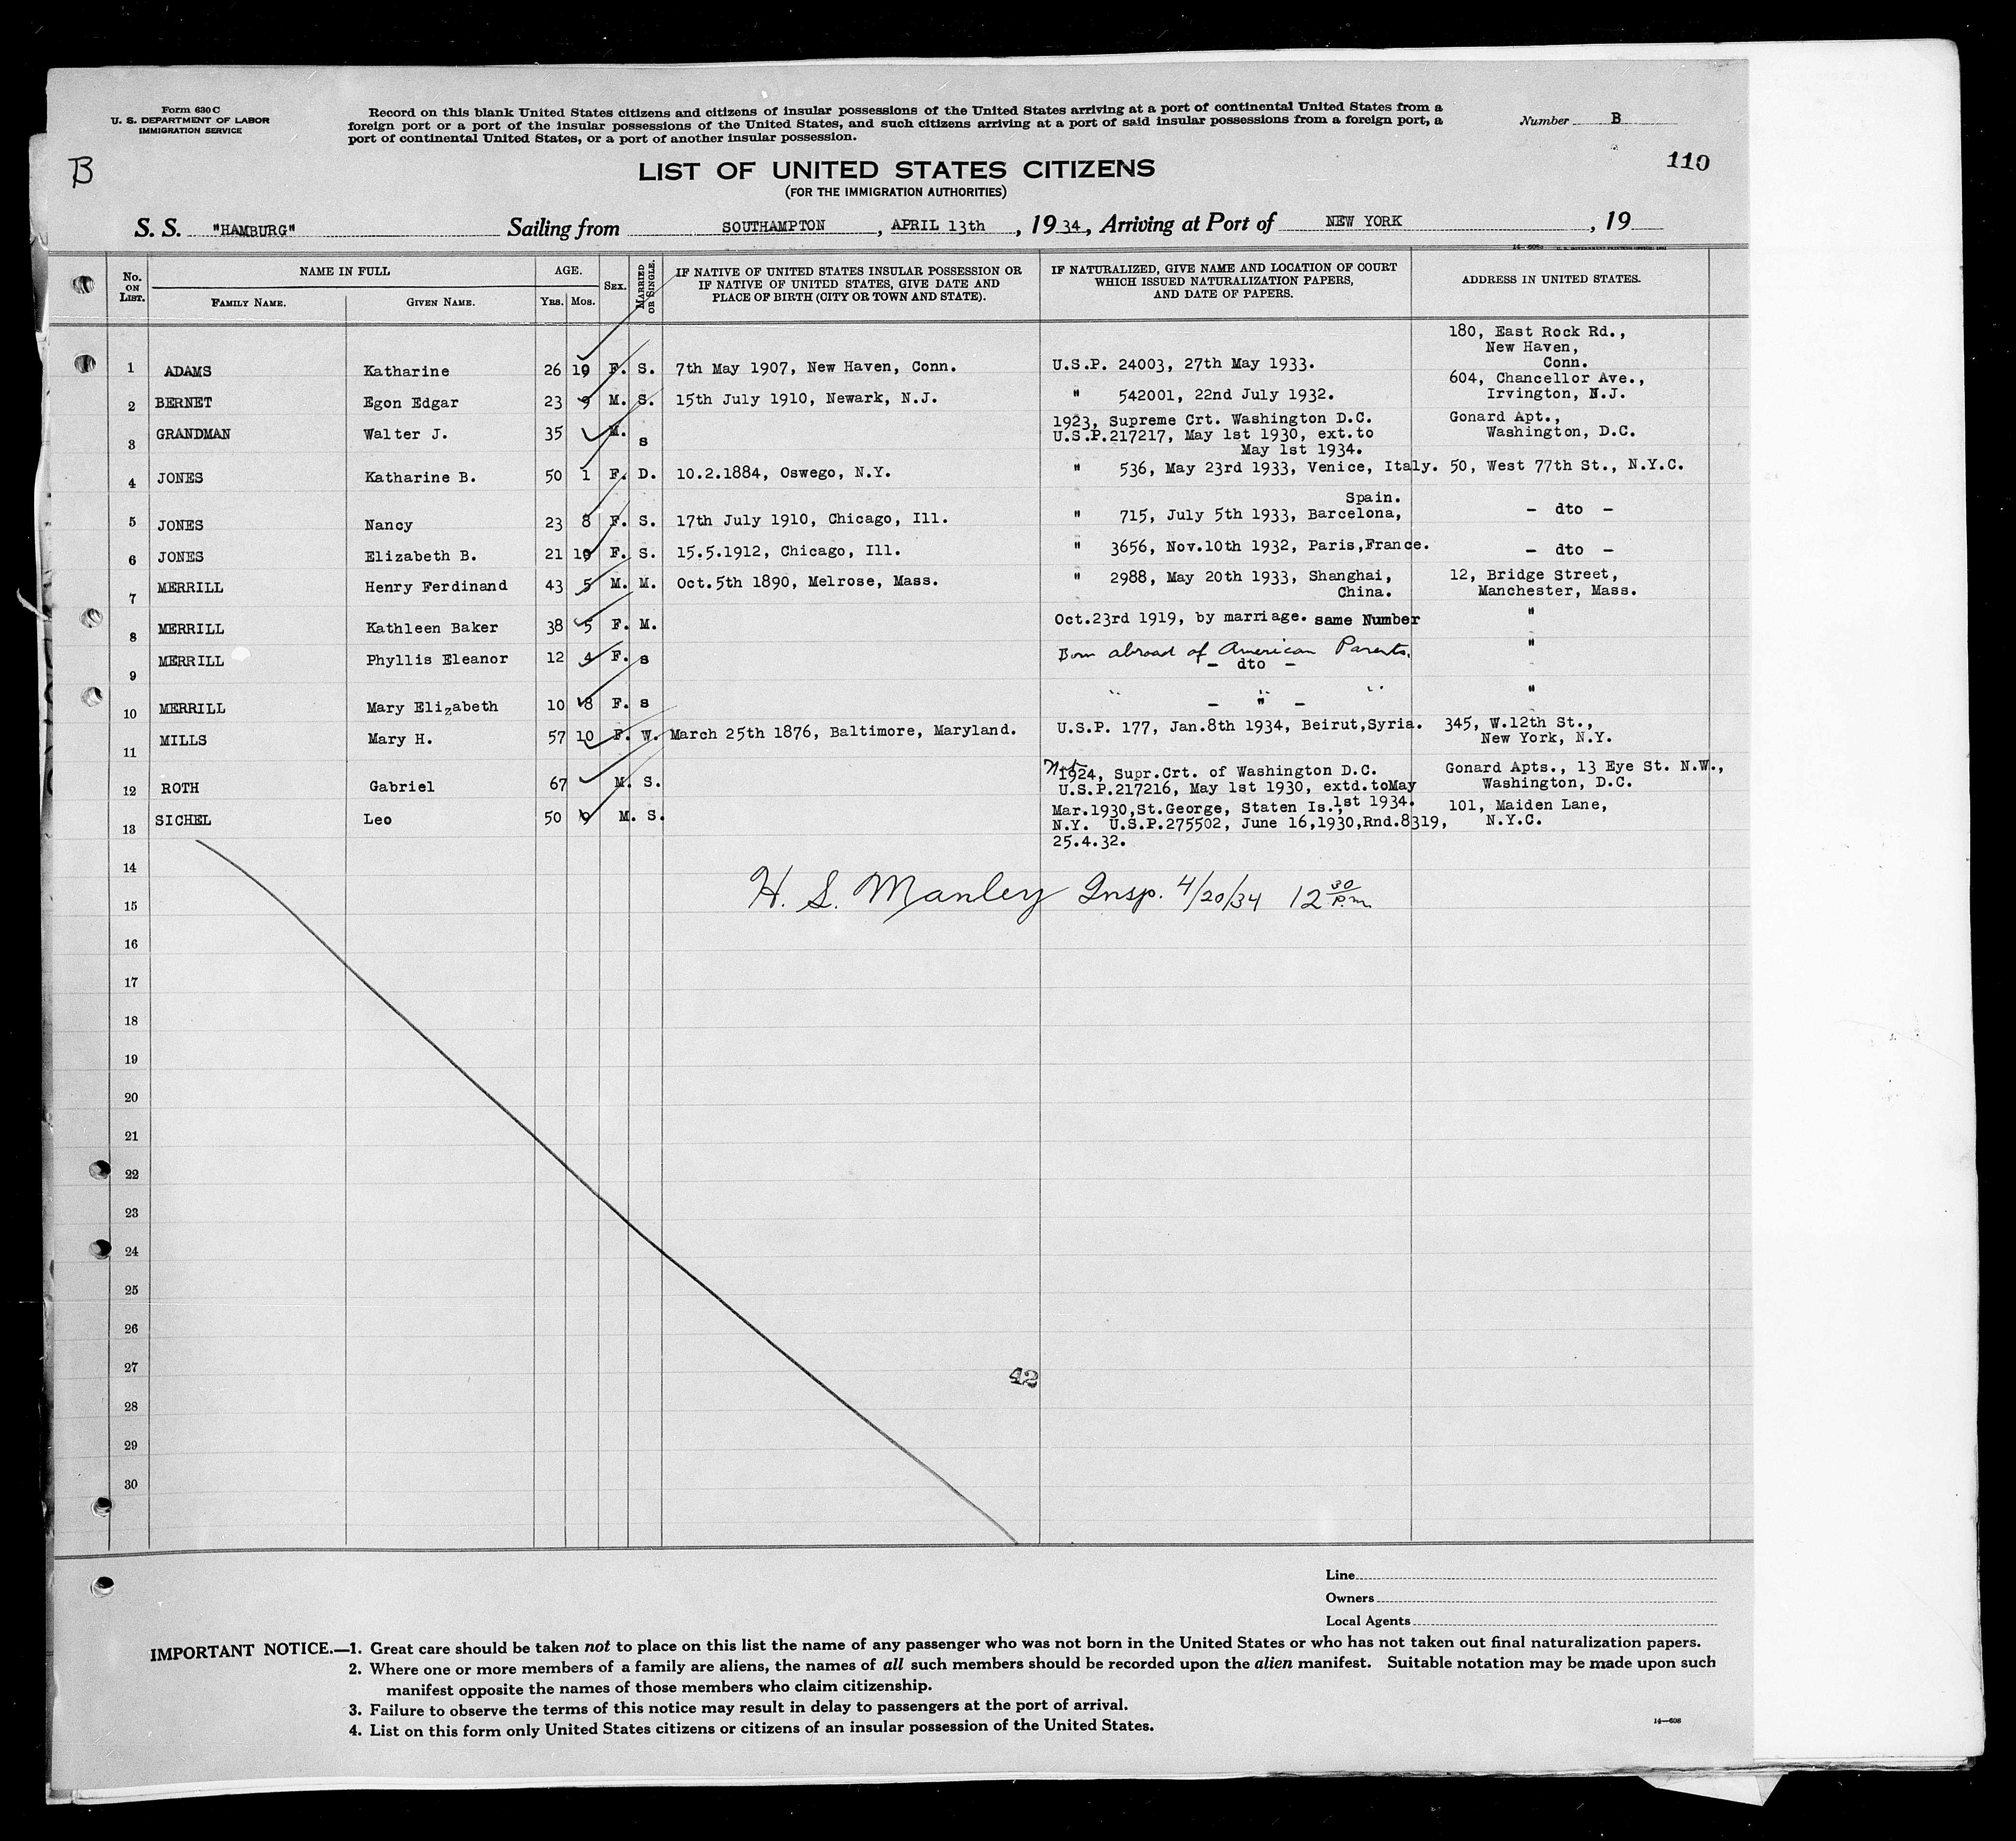 Form 630 C
U. S. DEPARTMENT OF LABOR
IMMIGRATION SERVICE
Record on this blank United States citizens and citizens of insular possessions of the United States arriving at a port of continental United States from a
foreign port or a port of the insular possessions of the United States, and such citizens arriving at a port of said insular possessions from a foreign port, a
port of continental United States, or a port of another insular possession.
Number B
B
110
LIST OF UNITED STATES CITIZENS
(FOR THE IMMIGRATION AUTHORITIES)
S. S. "HAMBURG" Sailing from SOUTHAMPTON, APRIL 13th, 1934, Arriving at Port of NEW YORK, 19
No. ON LIST. NAME IN FULL FAMILY NAME. GIVEN NAME. AGE. YRS. MOS. SEX. MARRIED OR SINGLE.
IF NATIVE OF UNITED STATES INSULAR POSSESSION OR
IF NATIVE OF UNITED STATES, GIVE DATE AND
PLACE OF BIRTH (CITY OR TOWN AND STATE).
IF NATURALIZED, GIVE NAME AND LOCATION OF COURT
WHICH ISSUED NATURALIZATION PAPERS,
AND DATE OF PAPERS.
ADDRESS IN UNITED STATES.
180, East Rock Rd.,
New Haven,
1 ADAMS Katharine 26 10 F. S. 7th May 1907, New Haven, Conn. U.S.P. 24003, 27th May 1933. Conn.
604, Chancellor Ave.,
2 BERNET Egon Edgar 23 9 M. S. 15th July 1910, Newark, N.J. " 542001, 22nd July 1932. Irvington, N.J.
1923, Supreme Crt. Washington D.C. Gonard Apt.,
3 GRANDMAN Walter J. 35 M. s U.S.P.217217, May 1st 1930, ext.to Washington, D.C.
May 1st 1934.
4 JONES Katharine B. 50 1 F. D. 10.2.1884, Oswego, N.Y. " 536, May 23rd 1933, Venice, Italy. 50, West 77th St., N.Y.C.
Spain.
5 JONES Nancy 23 8 F. S. 17th July 1910, Chicago, Ill. " 715, July 5th 1933, Barcelona, - dto -
6 JONES Elizabeth B. 21 10 F. S. 15.5.1912, Chicago, Ill. " 3656, Nov.10th 1932, Paris,France. - dto -
7 MERRILL Henry Ferdinand 43 5 M. M. Oct.5th 1890, Melrose, Mass. " 2988, May 20th 1933, Shanghai, 12, Bridge Street,
China. Manchester, Mass.
8 MERRILL Kathleen Baker 38 5 F. M. Oct.23rd 1919, by marriage. same Number "
9 MERRILL Phyllis Eleanor 12 4 F. s Born abroad of American Parents. "
- dto -
10 MERRILL Mary Elizabeth 10 8 F. s " - " - " "
11 MILLS Mary H. 57 10 F. W. March 25th 1876, Baltimore, Maryland. U.S.P. 177, Jan.8th 1934, Beirut,Syria. 345, W.12th St.,
New York, N.Y.
Nat 1924, Supr.Crt. of Washington D.C. Gonard Apts., 13 Eye St. N.W.,
12 ROTH Gabriel 67 M. S. U.S.P.217216, May 1st 1930, extd.toMay Washington, D.C.
1st 1934.
Mar.1930,St.George, Staten Is. 101, Maiden Lane,
13 SICHEL Leo 50 9 M. S. N.Y. U.S.P.275502, June 16,1930,Rnd.8319, N.Y.C.
25.4.32.
14
H. S. Manley Insp. 4/20/34 12 30 P.m.
15
16
17
18
19
20
21
22
23
24
25
26
27
42
28
29
30
Line
Owners
Local Agents
IMPORTANT NOTICE.—1. Great care should be taken not to place on this list the name of any passenger who was not born in the United States or who has not taken out final naturalization papers.
2. Where one or more members of a family are aliens, the names of all such members should be recorded upon the alien manifest. Suitable notation may be made upon such
manifest opposite the names of those members who claim citizenship.
3. Failure to observe the terms of this notice may result in delay to passengers at the port of arrival.
4. List on this form only United States citizens or citizens of an insular possession of the United States.
14—608